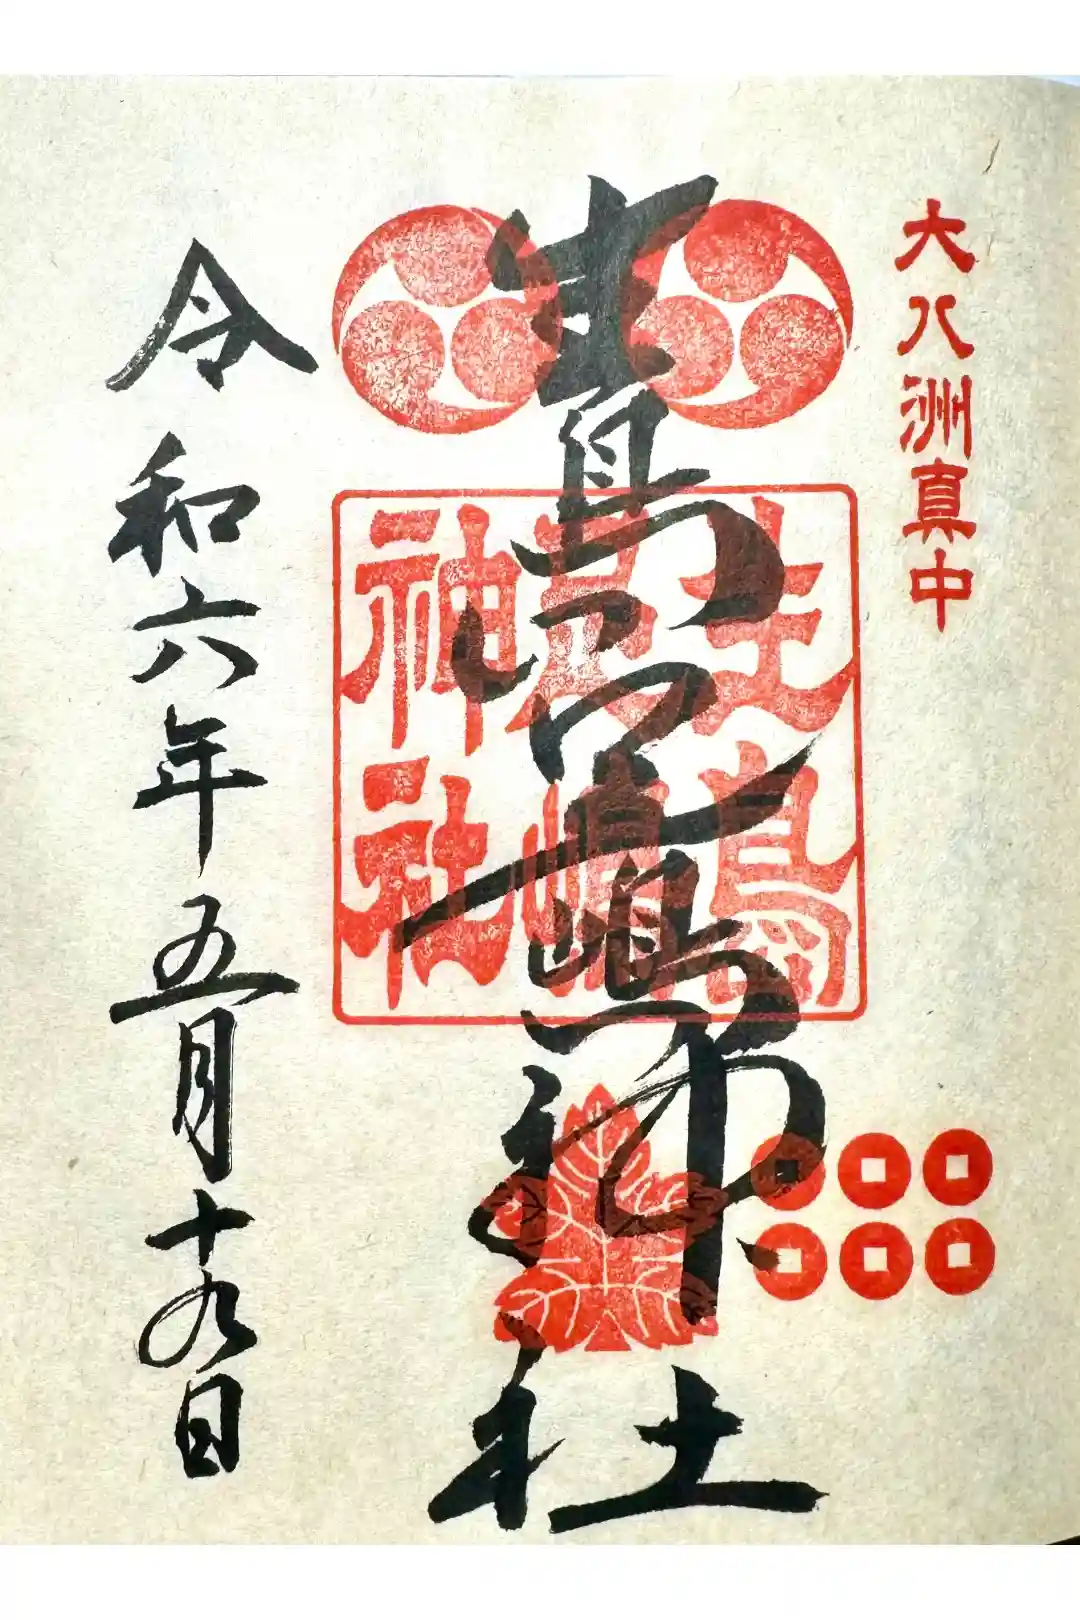 大八洲真中
生島足嶋神社
生島足嶋神社
令和六年五月十九日